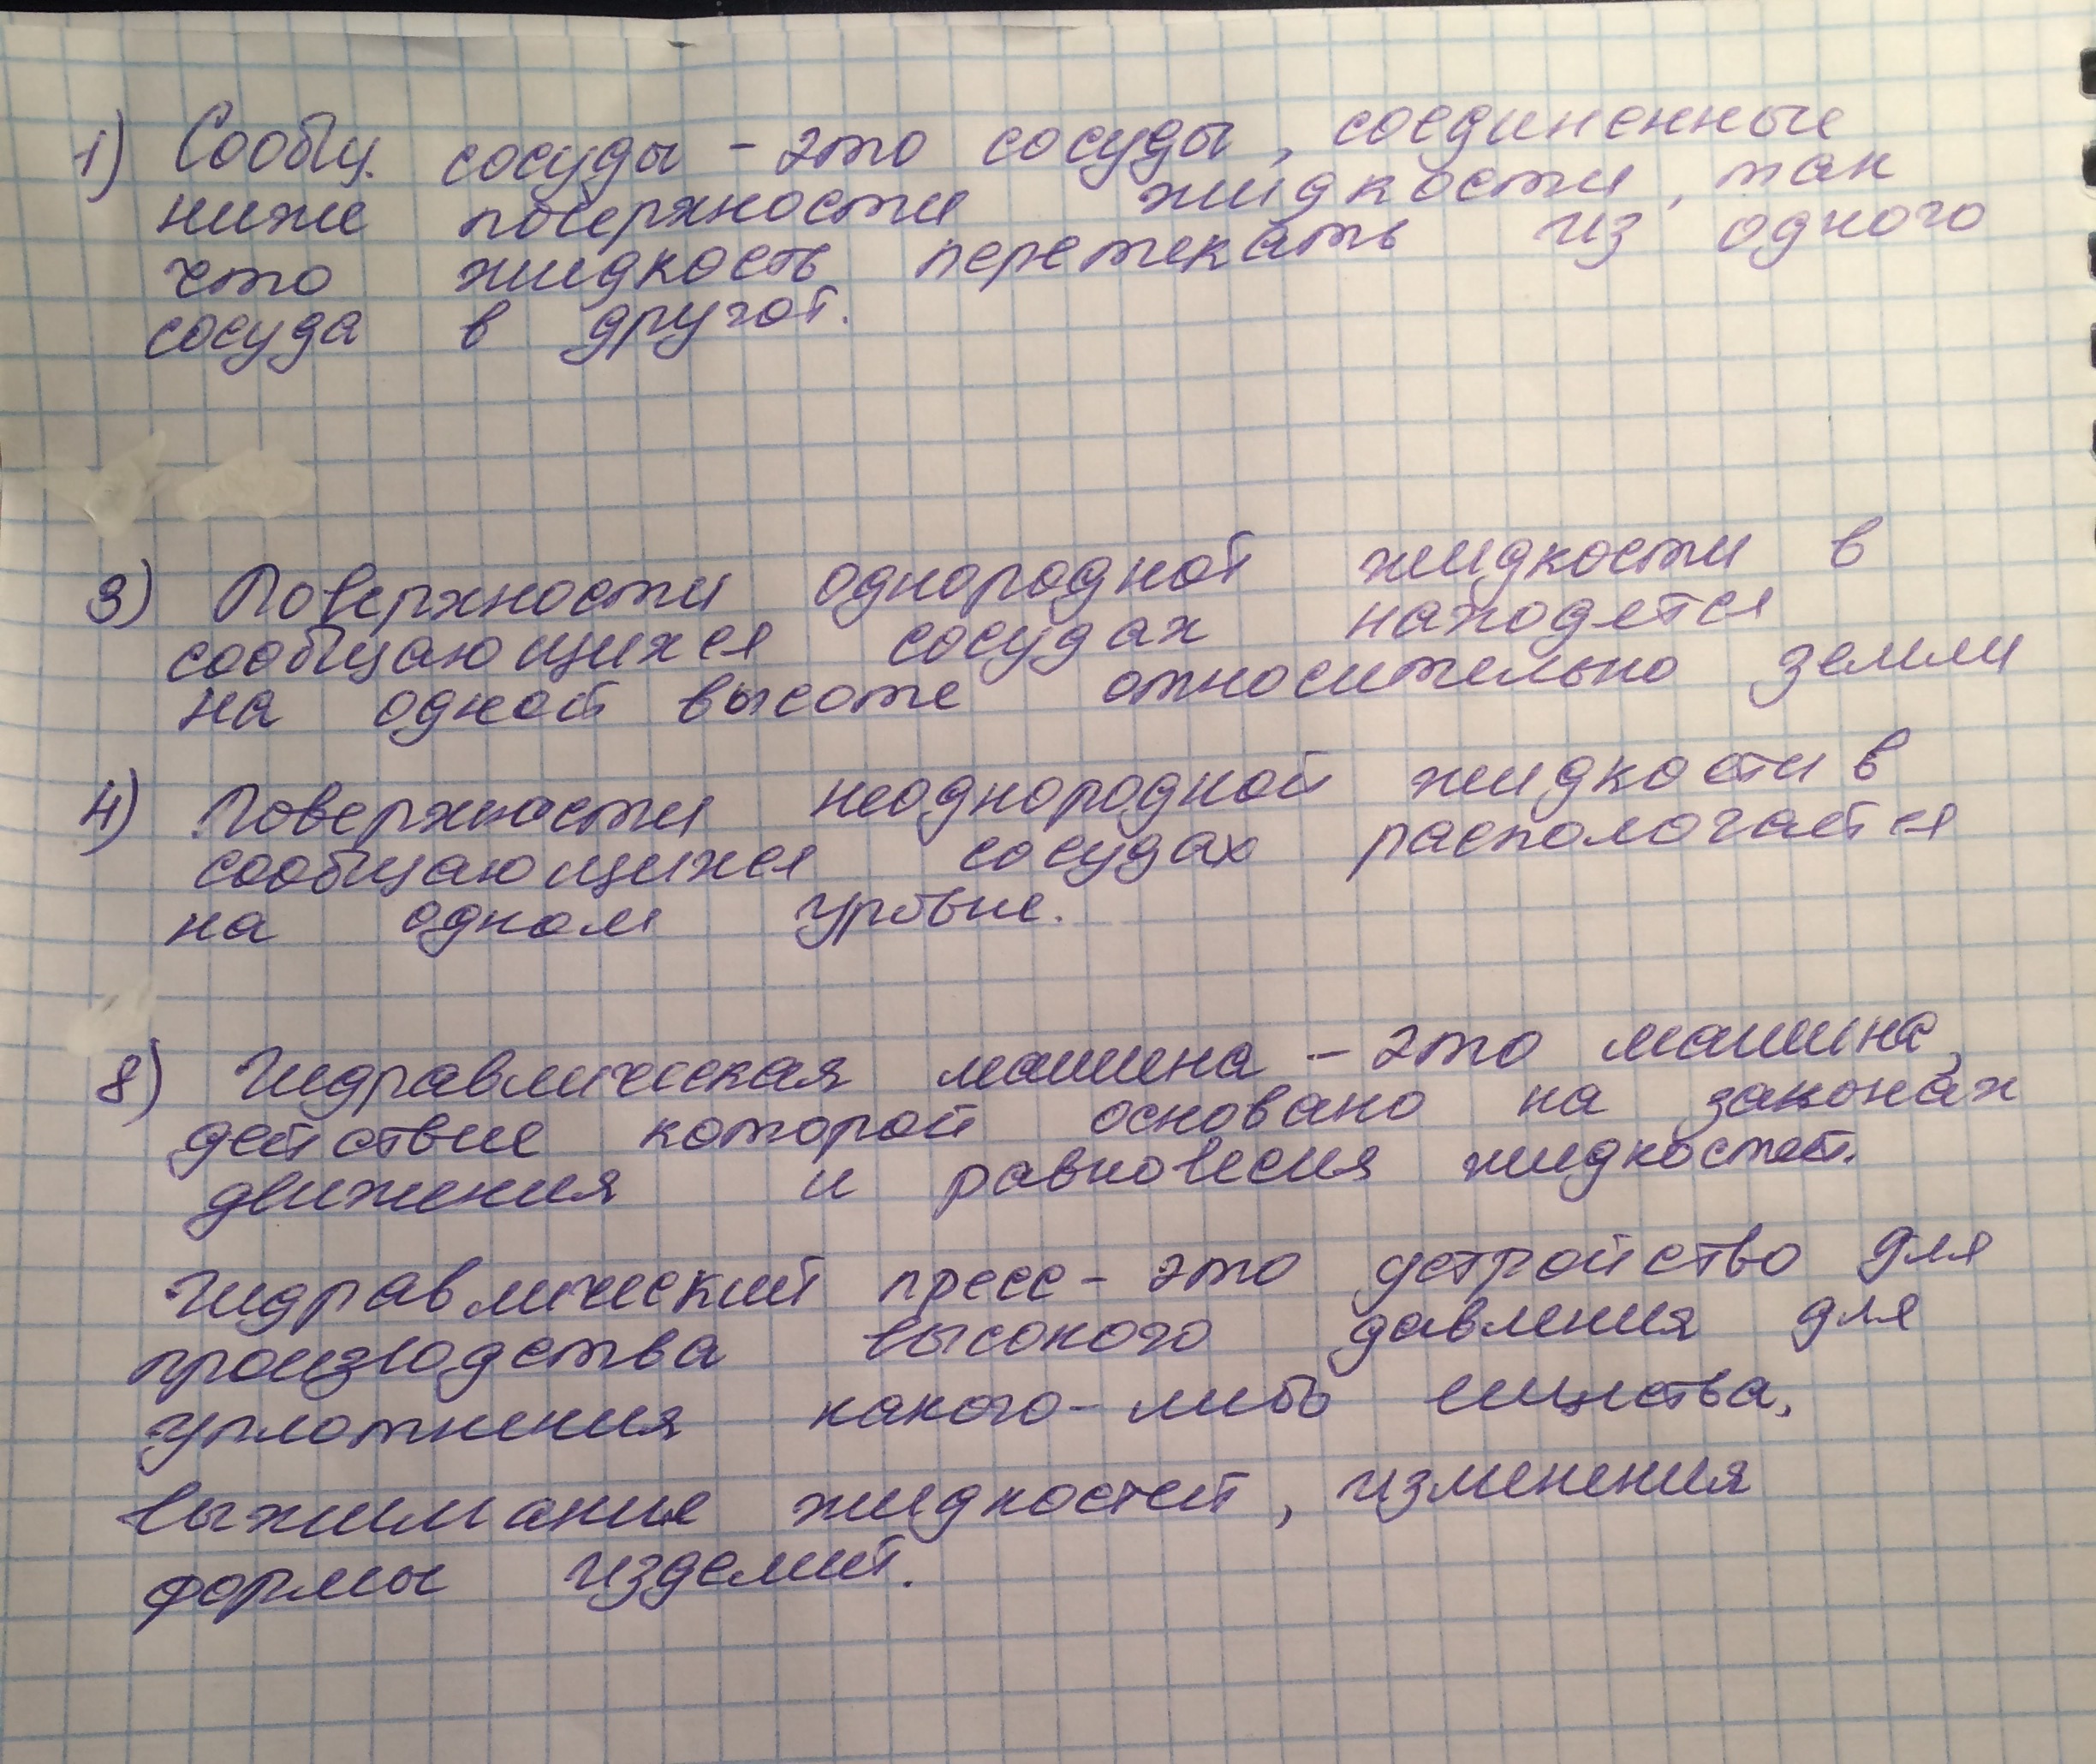 1) Сообщ. сосуды - это сосуды, соединенные
ниже поверхности жидкости, так
что жидкость перетекать из одного
сосуда в другой.
3) Поверхности однородной жидкости в
сообщающихся сосудах находется
на одной высоте относительно земли
4) Поверхности неоднородной жидкости в
сообщающихся сосудах распологается
на одном уровне.
8) Гидравлическая машина - это машина,
действие которой основано на законах
движения и равновесия жидкостей.
Гидравлический пресс - это устройство для
производства высокого давления для
уплотнения какого-либо вещества,
выжимание жидкостей, изменения
формы изделий.